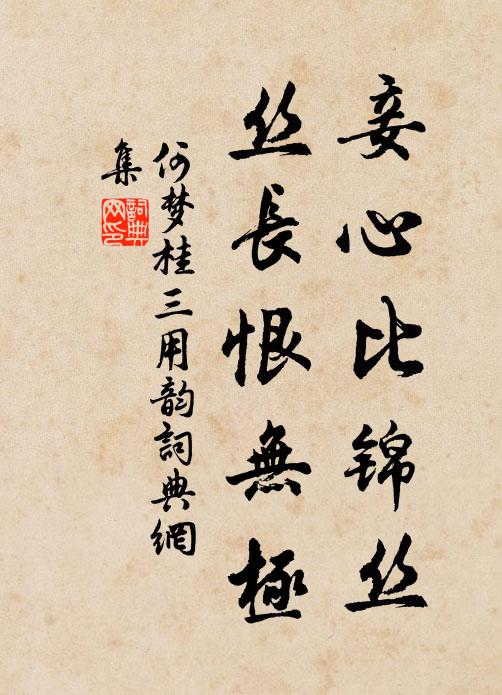 妾心比锦丝
丝長恨無極
何梦桂三用韵詞典網
集
詞典
网印